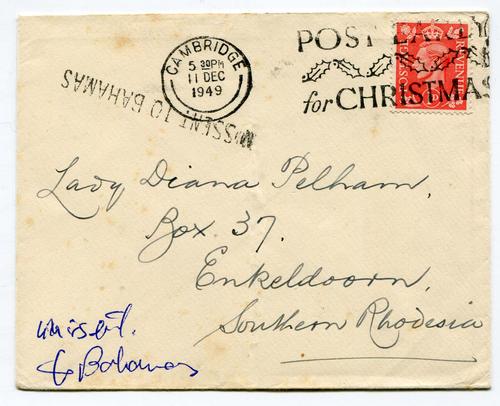 CAMBRIDGE
5 30PM
11 DEC
1949
POST EARLY
for CHRISTMAS
POSTAGE REVENUE
MISSENT TO BAHAMAS
Lady Diana Pelham,
Box 37.
Enkeldoorn,
Southern Rhodesia
missent.
to Bahamas